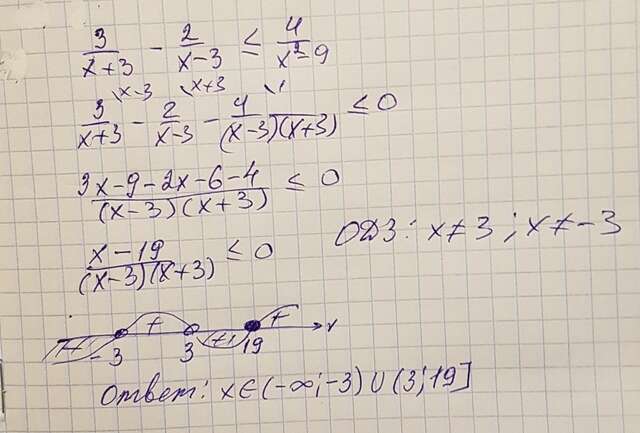 3/(x+3) - 2/(x-3) ≤ 4/(x²-9)
\x-3 \x+3 \1
3/(x+3) - 2/(x-3) - 4/((x-3)(x+3)) ≤ 0
(3x-9-2x-6-4)/((x-3)(x+3)) ≤ 0
ОДЗ: x≠3; x≠-3
(x-19)/((x-3)(x+3)) ≤ 0
-3 + 3 19 + x
Ответ: x∈(-∞;-3)∪(3;19]